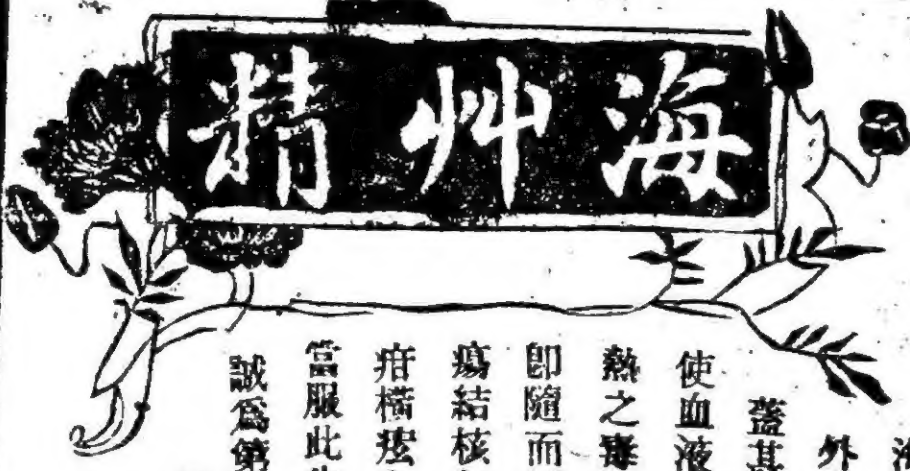 海艸精
外
蓋其
使血液
熱之毒
卽隨而
瘍結核
疳橫痃
當服此
誠爲第